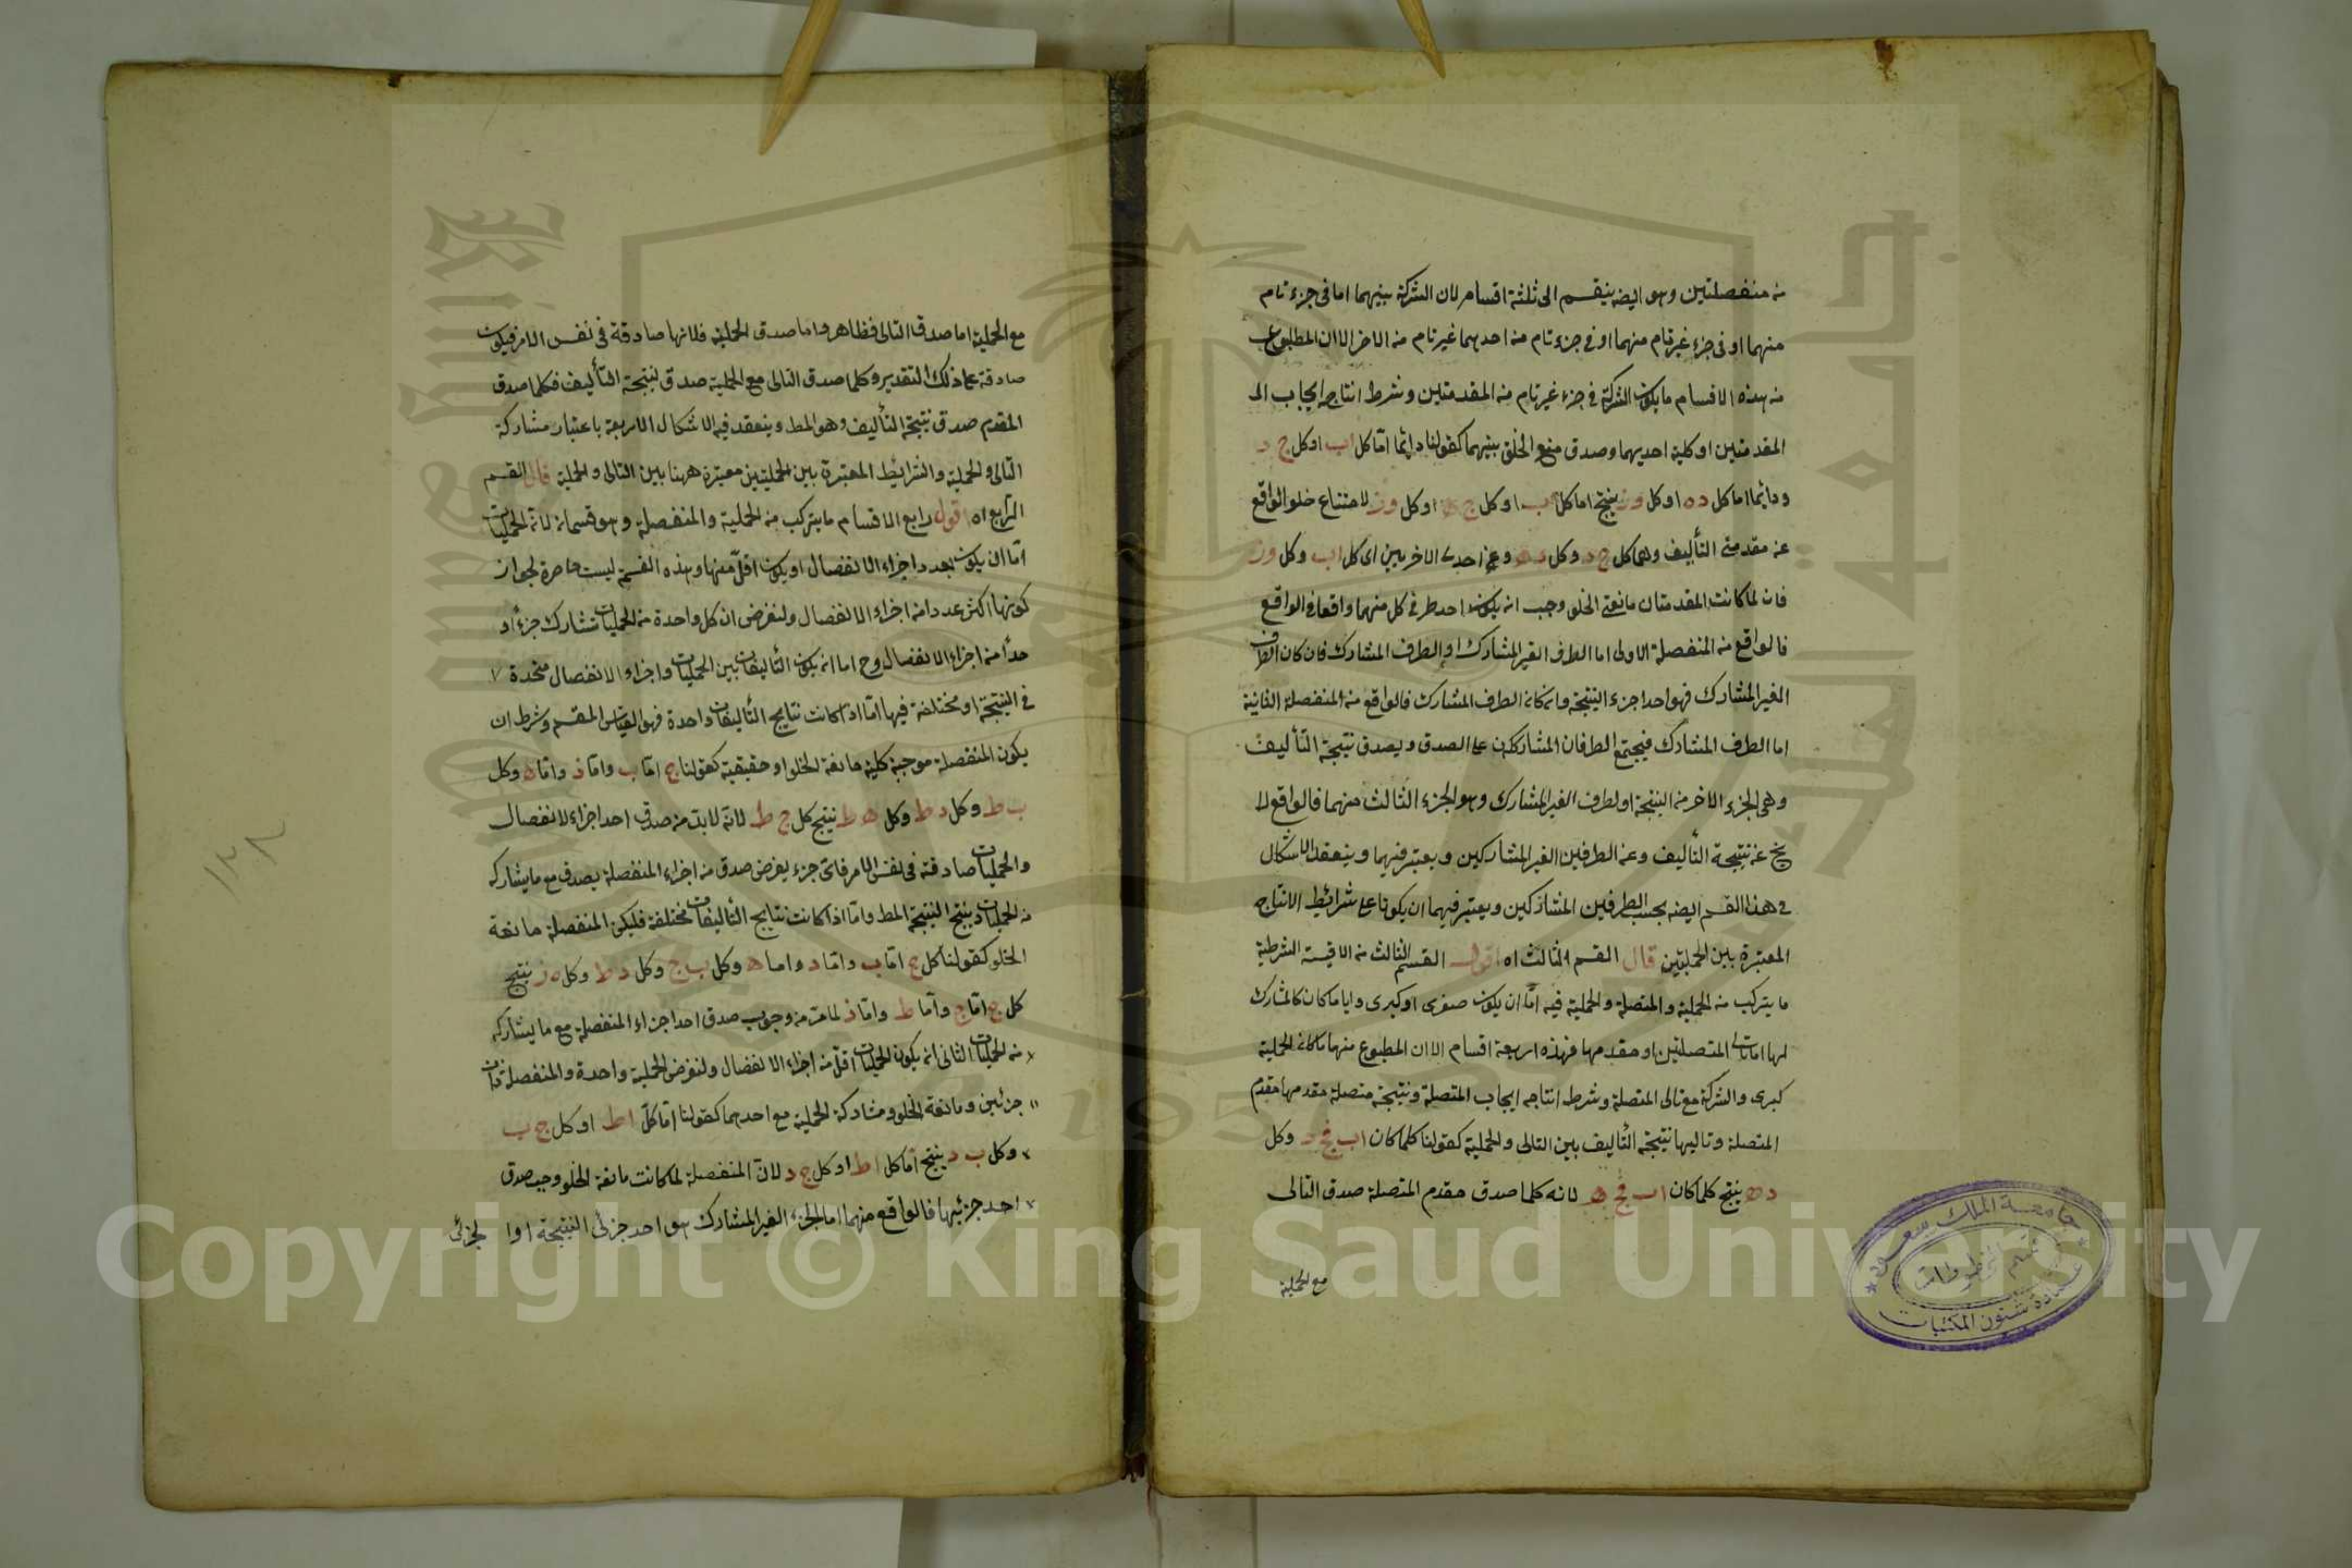 من منفصلتين وهو ايضه ينقسم الى ثلثة اقسام لان الشركة بينهما اما فى جزء تام
منهما او فى جزء غير تام منهما او فى جزء تام من احدهما غير تام من الاخر الا ان المطبوع
من هذه الاقسام ما يكون الشركة فى جزء غير تام من المقدمتين وشرط انتاجه ايجاب
المقدمتين او كلية احديهما وصدق منع الخلو بينهما كقولنا دائما اما كل اب او كل ج د
ودائما اما كل ده او كل وز ينتج اما كل اب او كل ج ه او كل وز لامتناع خلو الواقع
عن مقدمتى التأليف وهما كل ج د وكل ده وعن احدى الاخريين اى كل اب وكل وز
فان لما كانت المقدمتان مانعتى الخلو وجب ان يكون احد طرفى كل منهما واقعا فى الواقع
فالواقع من المنفصلة الاولى اما الطرف الغير المشارك او الطرف المشارك فان كان الطرف
الغير المشارك فهو احد اجزء النتيجة وان كان الطرف المشارك فالواقع من المنفصلة الثانية
اما الطرف المشارك فيجتمع الطرفان المشاركان على الصدق ويصدق نتيجة التأليف
وهى الجزء الاخر من النتيجة او لطرف الغير المشارك وهو الجزء الثالث منهما فالواقع لا
يخ عن نتيجة التأليف وعن الطرفين الغير المشاركين ويعتبر فيهما وينعقد الاشكال
فى هذا القسم ايضه بحسب الطرفين المشاركين ويعتبر فيهما ان يكونا على شرائيط الانتاج
المعتبرة بين الحمليتين قال القسم الثالث اه اقول القسم الثالث من الاقيسة الشرطية
ما يتركب من الحملية والمتصلة والحملية فيه اما ان يكون صغرى او كبرى وايا ما كان كالمشارك
لها اما تالى المتصلتين او مقدمها فهذه اربعة اقسام الا ان المطبوع منها ما كان الحملية
كبرى والشركة مع تالى المتصلة وشرط انتاجه ايجاب المتصلة ونتيجة متصلة مقدمها مقدم
المتصلة وتاليها نتيجة التأليف بين التالى والحملية كقولنا كلما كان اب فج د وكل
ده ينتج كلما كان اب فج ه لانه كلما صدق مقدم المتصلة صدق التالى
مع الحملية
مع الحملية اما صدق التالى فظاهر واما صدق الحملية فلانها صادقة فى نفس الامر فيكون
صادقة على ذلك التقدير وكلما صدق التالى مع الحملية صدق نتيجة التأليف فكلما صدق
المقدم صدق نتيجة التأليف وهو المط وينعقد فيه الاشكال الاربعة باعتبار مشاركة
التالى والحملية والشرائيط المعتبرة بين الحمليتين معتبرة ههنا بين التالى والحملية قال القسم
الرابع اه اقول رابع الاقسام ما يتركب من الحملية والمنفصلة وهو قسمان لان الحمليات
اما ان يكون بعدد اجزاء الانفصال او يكون اقل منها وهذه القسمة ليست حاصرة لجواز
كونها اكثر عددا من اجزاء الانفصال ولنفرض ان كل واحدة من الحمليات تشارك جزءا و
حدا من اجزاء الانفصال وح اما ان يكون التأليفات بين الحمليات واجزاء الانفصال متحدة
فى النتيجة او مختلفة فيها اما اذا كانت نتايج التأليفات واحدة فهو القياس المقسم وشرطه ان
يكون المنفصلة موجبة كلية مانعة الخلو او حقيقية كقولنا ج اما ب واما د واما ه وكل
ب ط وكل د ط وكل ه ط ينتج كل ج ط لانه لابد من صدق احد اجزاء الانفصال
والحمليات صادقة فى نفس الامر فاى جزء يفرض صدق من اجزاء المنفصلة يصدق مع ما يشاركه
من الحمليات وينتج النتيجة المط واما اذا كانت نتايج التأليفات مختلفة فليكن المنفصلة مانعة
الخلو كقولنا كل ج اما ب واما د واما ه وكل ب ج وكل د ط وكل ه ز ينتج
كل ج اما ج واما ط واما ز لما مر من وجوب صدق احد اجزاء المنفصلة مع ما يشاركه
من الحمليات الثانى ان يكون الحمليات اقل من اجزاء الانفصال ولنفرض الحملية واحدة والمنفصلة ذات
جزئين ومانعة الخلو ومشاركة الحملية مع احدهما كقولنا اما كل ا ط او كل ج ب
وكل ب د ينتج اما كل ا ط او كل ج د لان المنفصلة لما كانت مانعة الخلو وجب صدق
احد جزئيها فالواقع منهما اما الجزء الغير المشارك هو احد جزئى النتيجة اوا لجزئى
١٢٨
جامعة الملك سعود
قسم المخطوطات
عمادة شئون المكتبات
Copyright © King Saud University
1957